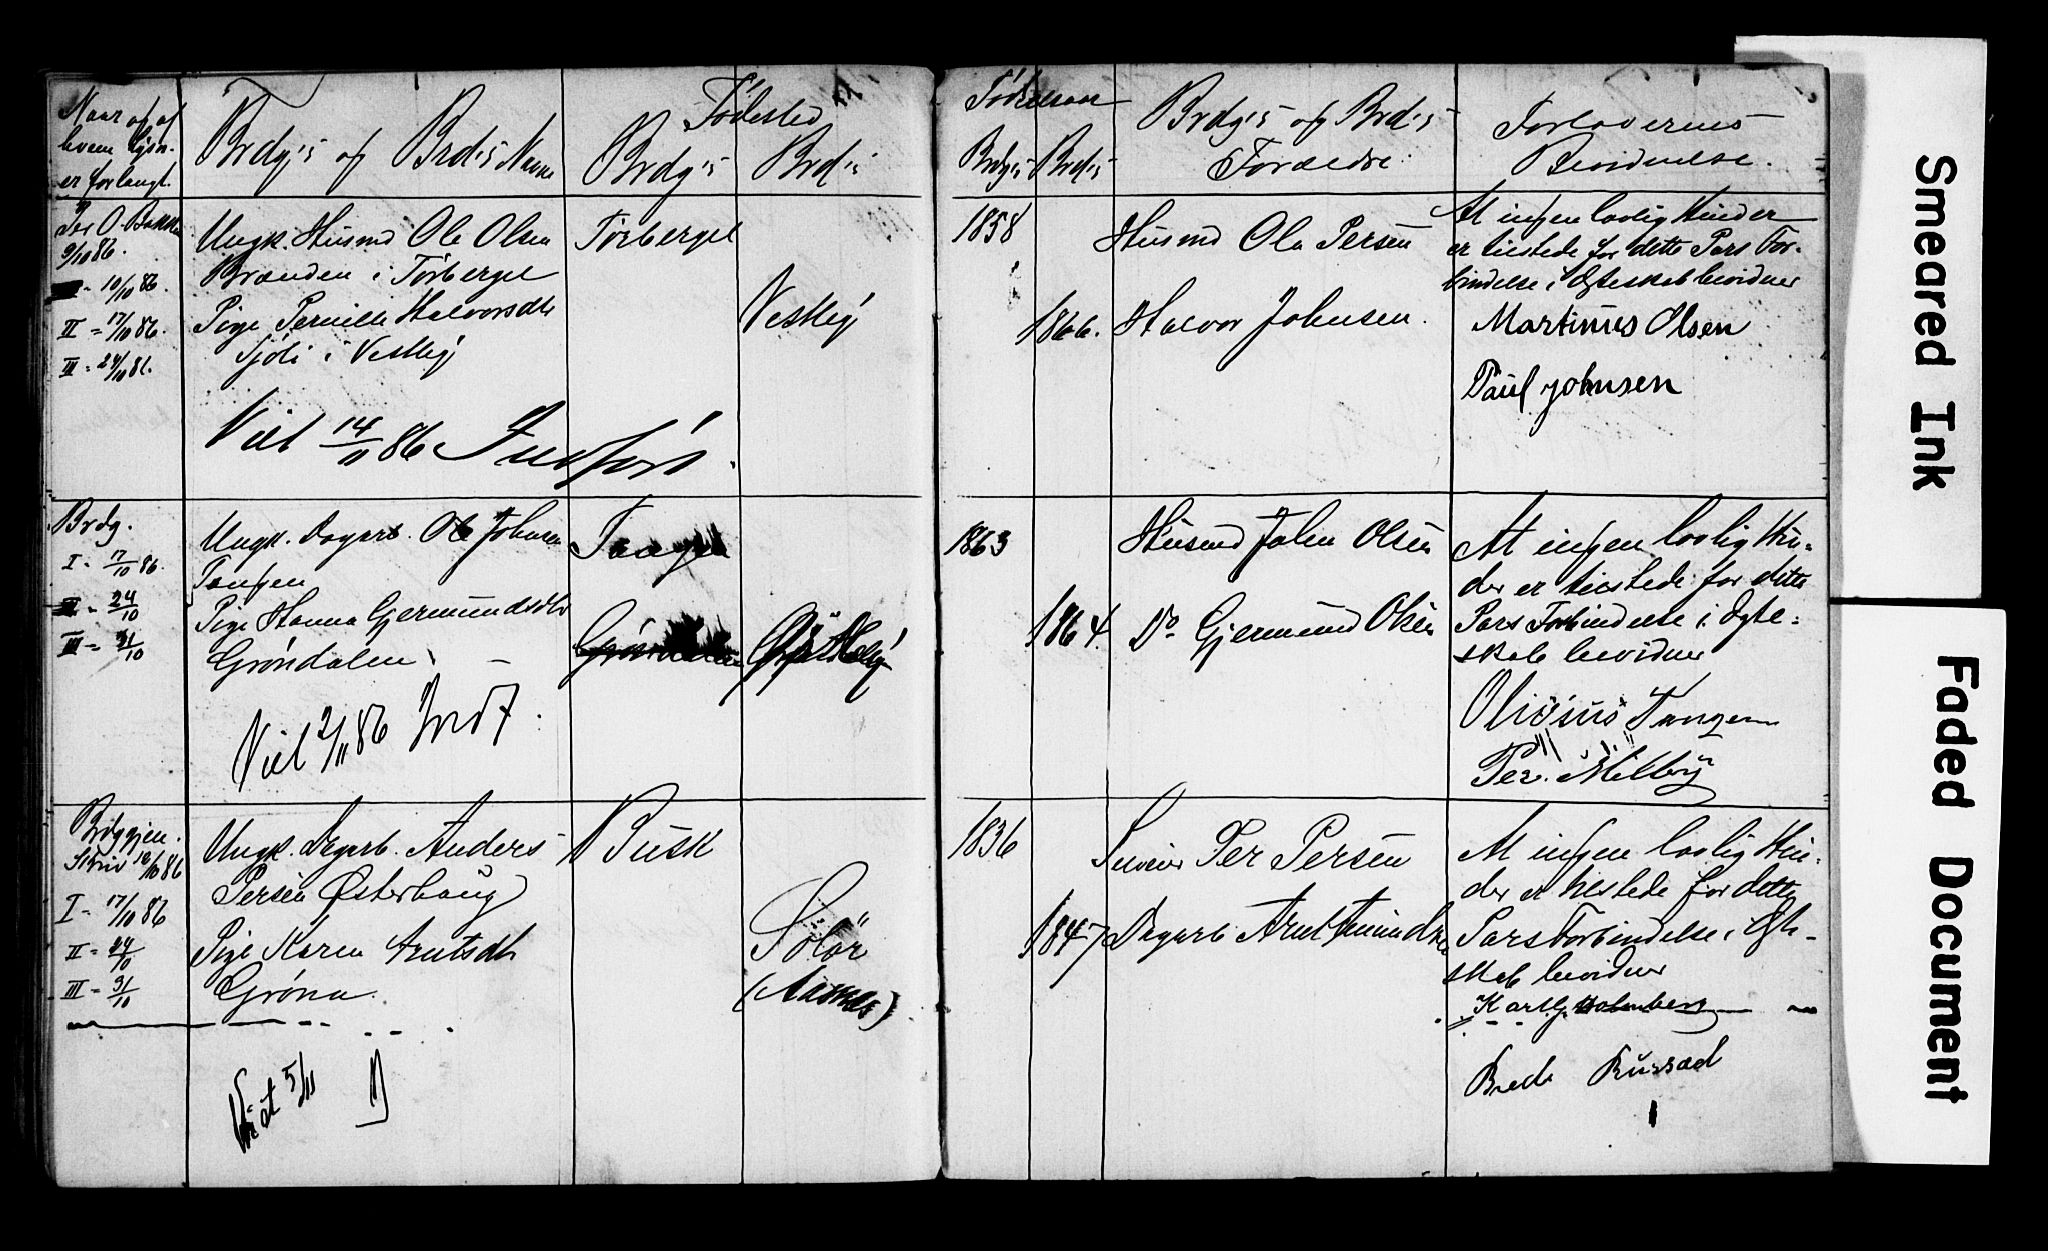 Naar og af
hvem lysn.
er forlangt.
Brdg's og Brd's Navne
Fødested
Brdg's
Brd's
Fødselsaar
Brdg's
Brd's
Brdg's og Brd's
Forældre.
Forlovernes
Bevidnelse.
Per O. Bakken
9/10 86.
I - 10/10 86.
II = 17/10 86.
III = 24/10 86.
Ungk. Husmd Ole Olsen
Brænden i Törberget
Pige Pernille Halvorsdtr
Sjöli i Vestby
Viet 14/11 86 Indført.
Törberget
Vestby
1858
1866.
Husmd Ole Persen
Halvor Johnsen.
At ingen lovlig Hinder
er tilstede for dette Pars For-
bindelse i Ægteskab bevidner
Martinus Olsen
Paul Johnsen
Brdg.
I - 17/10 86.
II - 24/10
III = 31/10
Ungk. Dagarb. Ole Johnsen
Tangen
Pige Hanna Gjermundsdtr
Gröndalen
Viet 2/11 86 Indf.
Tangen
Gröndalen
1863
1864.
Husmd John Olsen
Do Gjermund Olsen
At ingen lovlig Hin-
der er tilstede for dette
Pars Forbindelse i Ægte-
skab bevidner
Olivius Tangen
Per. Melby
Brdggjen.
Skriv 16/10 86
I - 17/10 86
II = 24/10
III = 31/10
Ungk. Dagarb. Anders
Persen Østerhaug
Pige Karen Arntsdtr
Gröna.
Viet 5/11
N. Busk
Solör
(Aasnes)
1836
1847
Per Persen
Dagarb Arnt Amundsen
At ingen lovlig Hin-
der er tilstede for dette
Pars Forbindelse i Ægte-
skab bevidner
Karl G. Holmberg
Brede Russad
Smeared Ink
Faded Document